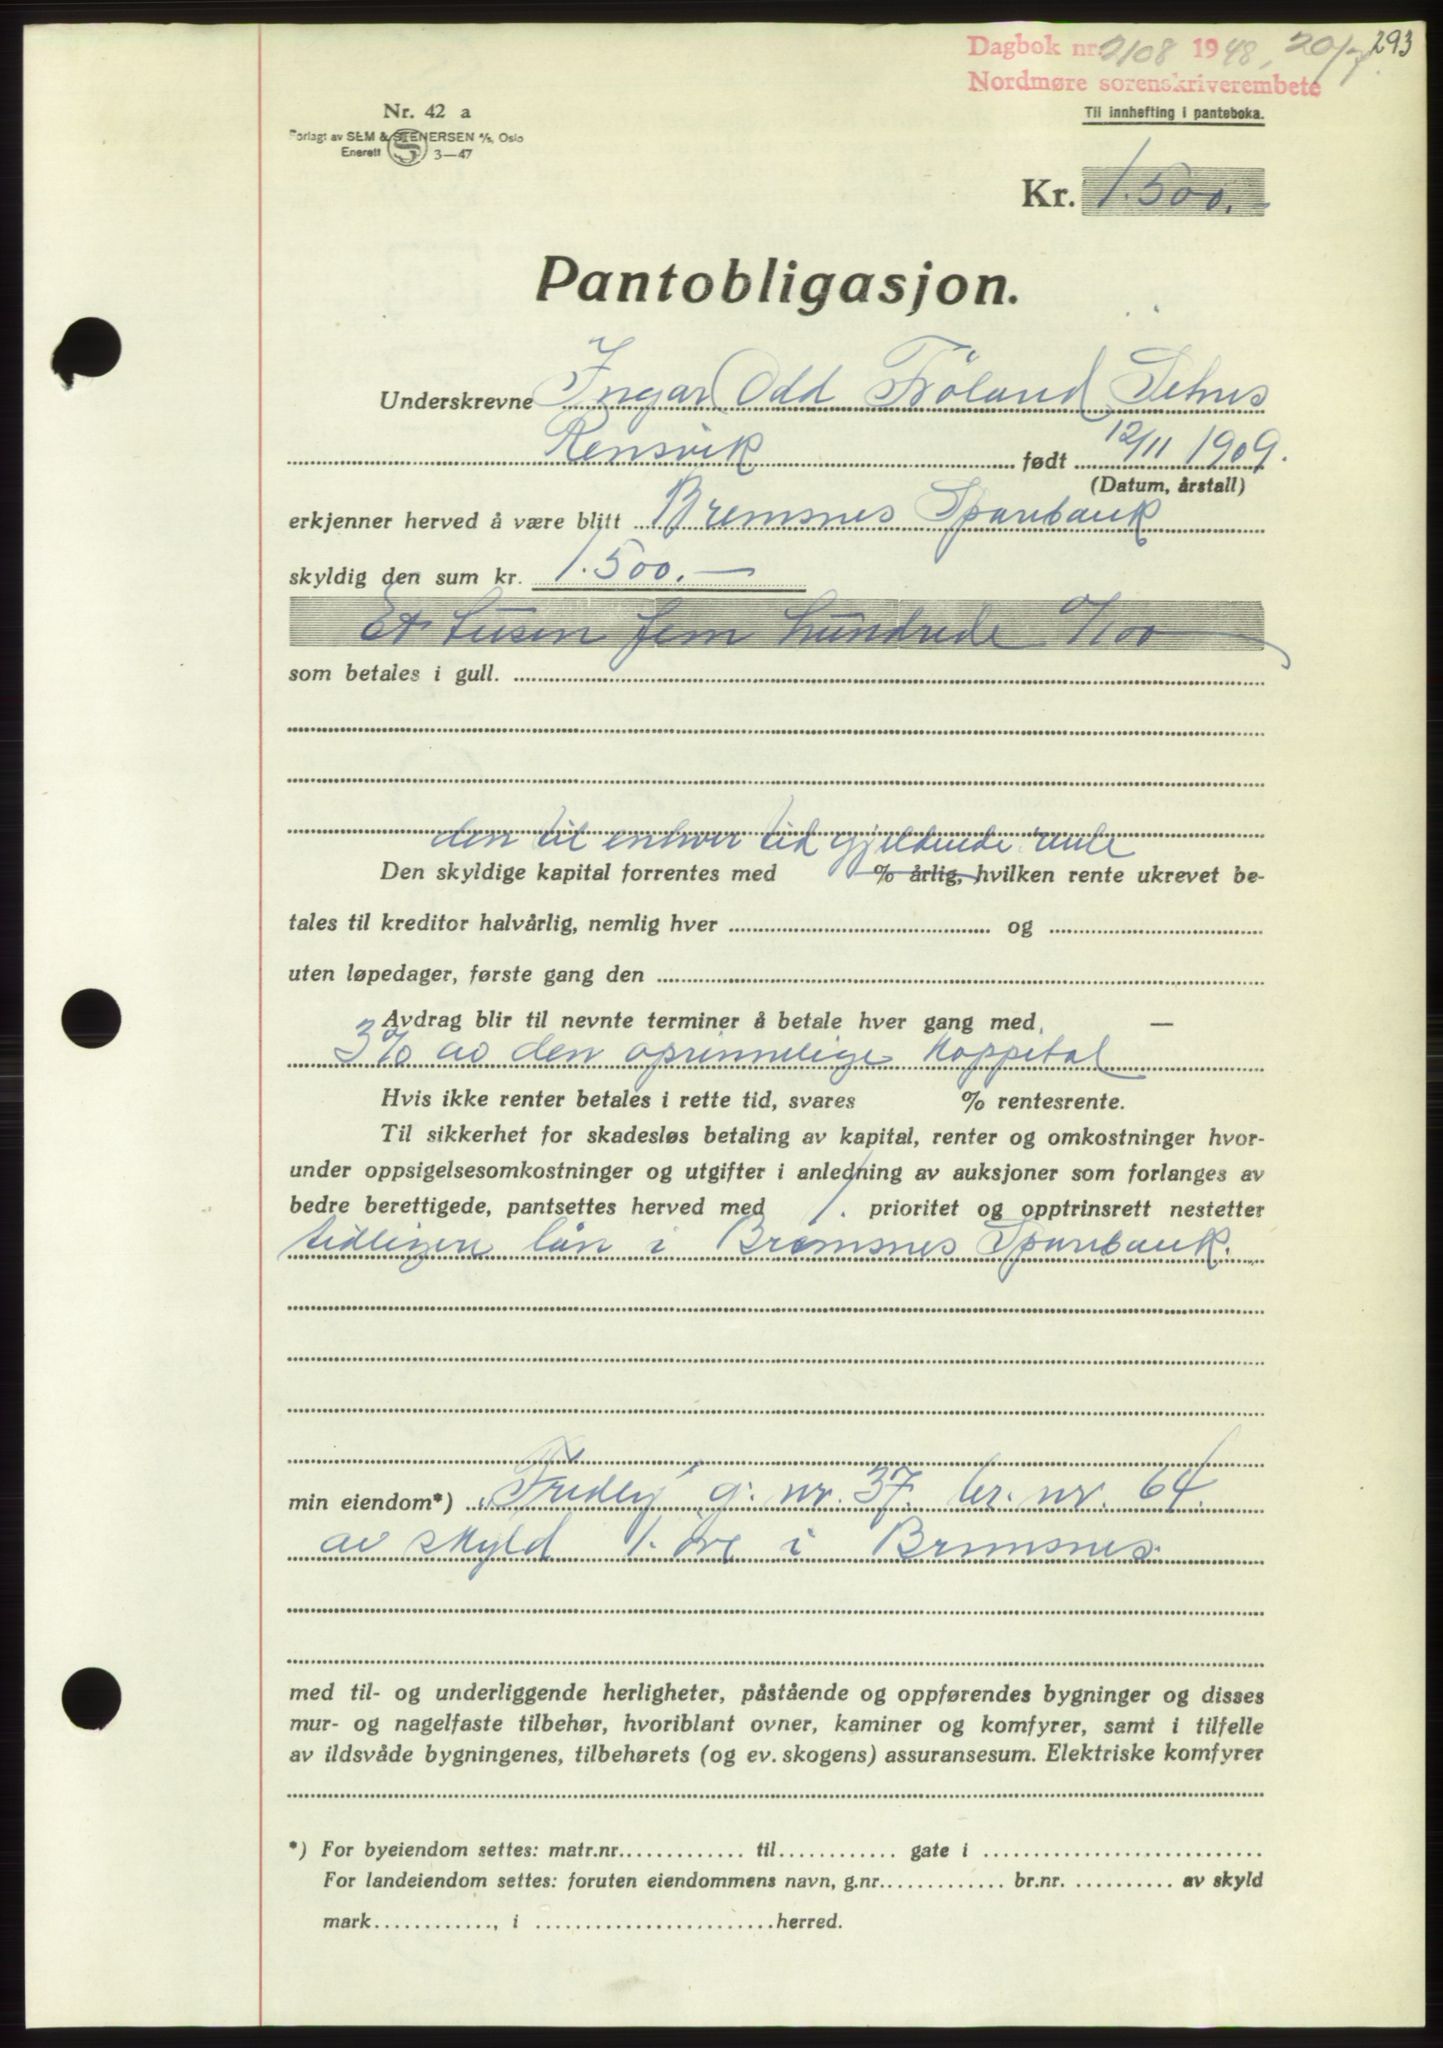 Dagbok nr. 2108 1948, 20/7. 293
Nordmøre sorenskriverembete
Til innhefting i panteboka.
Nr. 42 a
Forlagt av SEM & STENERSEN A/S, Oslo
Enerett S 3—47
Kr. 1.500.-
Pantobligasjon.
Underskrevne Ingar Odd Fröland
Rensvik født 12/11 1909.
(Datum, årstall)
erkjenner herved å være blitt Bremsnes Sparebank
skyldig den sum kr. 1.500.—
Et tusen fem hundrede 0/100
som betales i gull.
den til enhver tid gjeldende rente
Den skyldige kapital forrentes med % årlig, hvilken rente ukrevet be-
tales til kreditor halvårlig, nemlig hver og
uten løpedager, første gang den
Avdrag blir til nevnte terminer å betale hver gang med —
3% av den oprinnelige kappital
Hvis ikke renter betales i rette tid, svares % rentesrente.
Til sikkerhet for skadesløs betaling av kapital, renter og omkostninger hvor-
under oppsigelsesomkostninger og utgifter i anledning av auksjoner som forlanges av
bedre berettigede, pantsettes herved med 1. prioritet og opptrinsrett nestetter
tidligere lån i Bremsnes Sparebank.
min eiendom*) g. nr. 37. br. nr. 64.
av skyld 1. øre i Bremsnes.
med til- og underliggende herligheter, påstående og oppførendes bygninger og disses
mur- og nagelfaste tilbehør, hvoriblant ovner, kaminer og komfyrer, samt i tilfelle
av ildsvåde bygningenes, tilbehørets (og ev. skogens) assuransesum. Elektriske komfyrer
*) For byeiendom settes: matr.nr. til gate i
For landeiendom settes: foruten eiendommens navn, g.nr. br.nr. av skyld
mark , i herred.